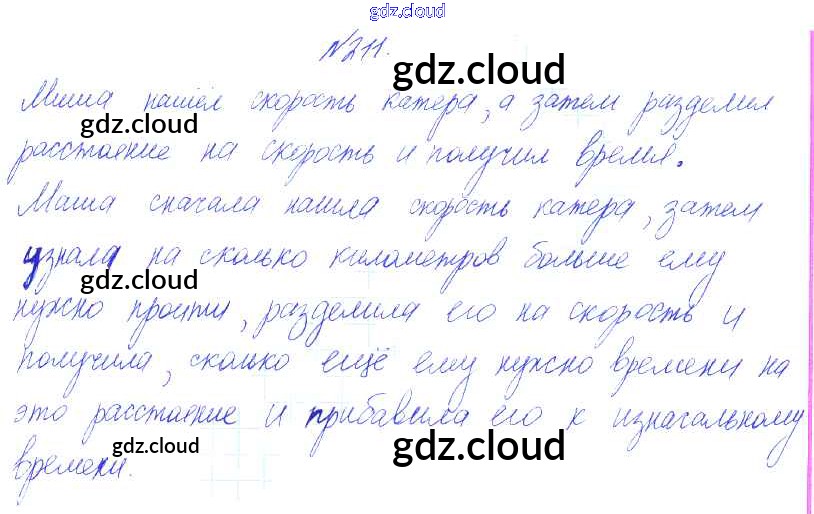 gdz.cloud
№211.
gdz.cloud
Миша нашёл скорость катера, а затем разделил
gdz.cloud
расстояние на скорость и получил время.
Маша сначала нашла скорость катера, затем
узнала на сколько километров больше ему
gdz.cloud
gdz.cloud
нужно пройти, разделила его на скорость и
получила, сколько ещё ему нужно времени на
это расстояние и прибавила его к изначальному
gdz.cloud
gdz.cloud
времени.